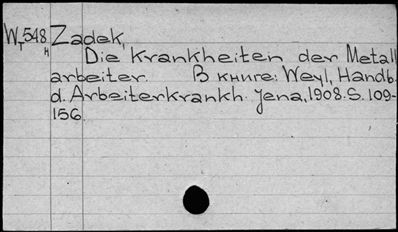 W,548 Zadek,
н
Die Krankheiten der Metall
arbeiter. В книге: Weyl, Handb.
d. Arbeiterkrankh. Jena, 1908. S. 109-
156.